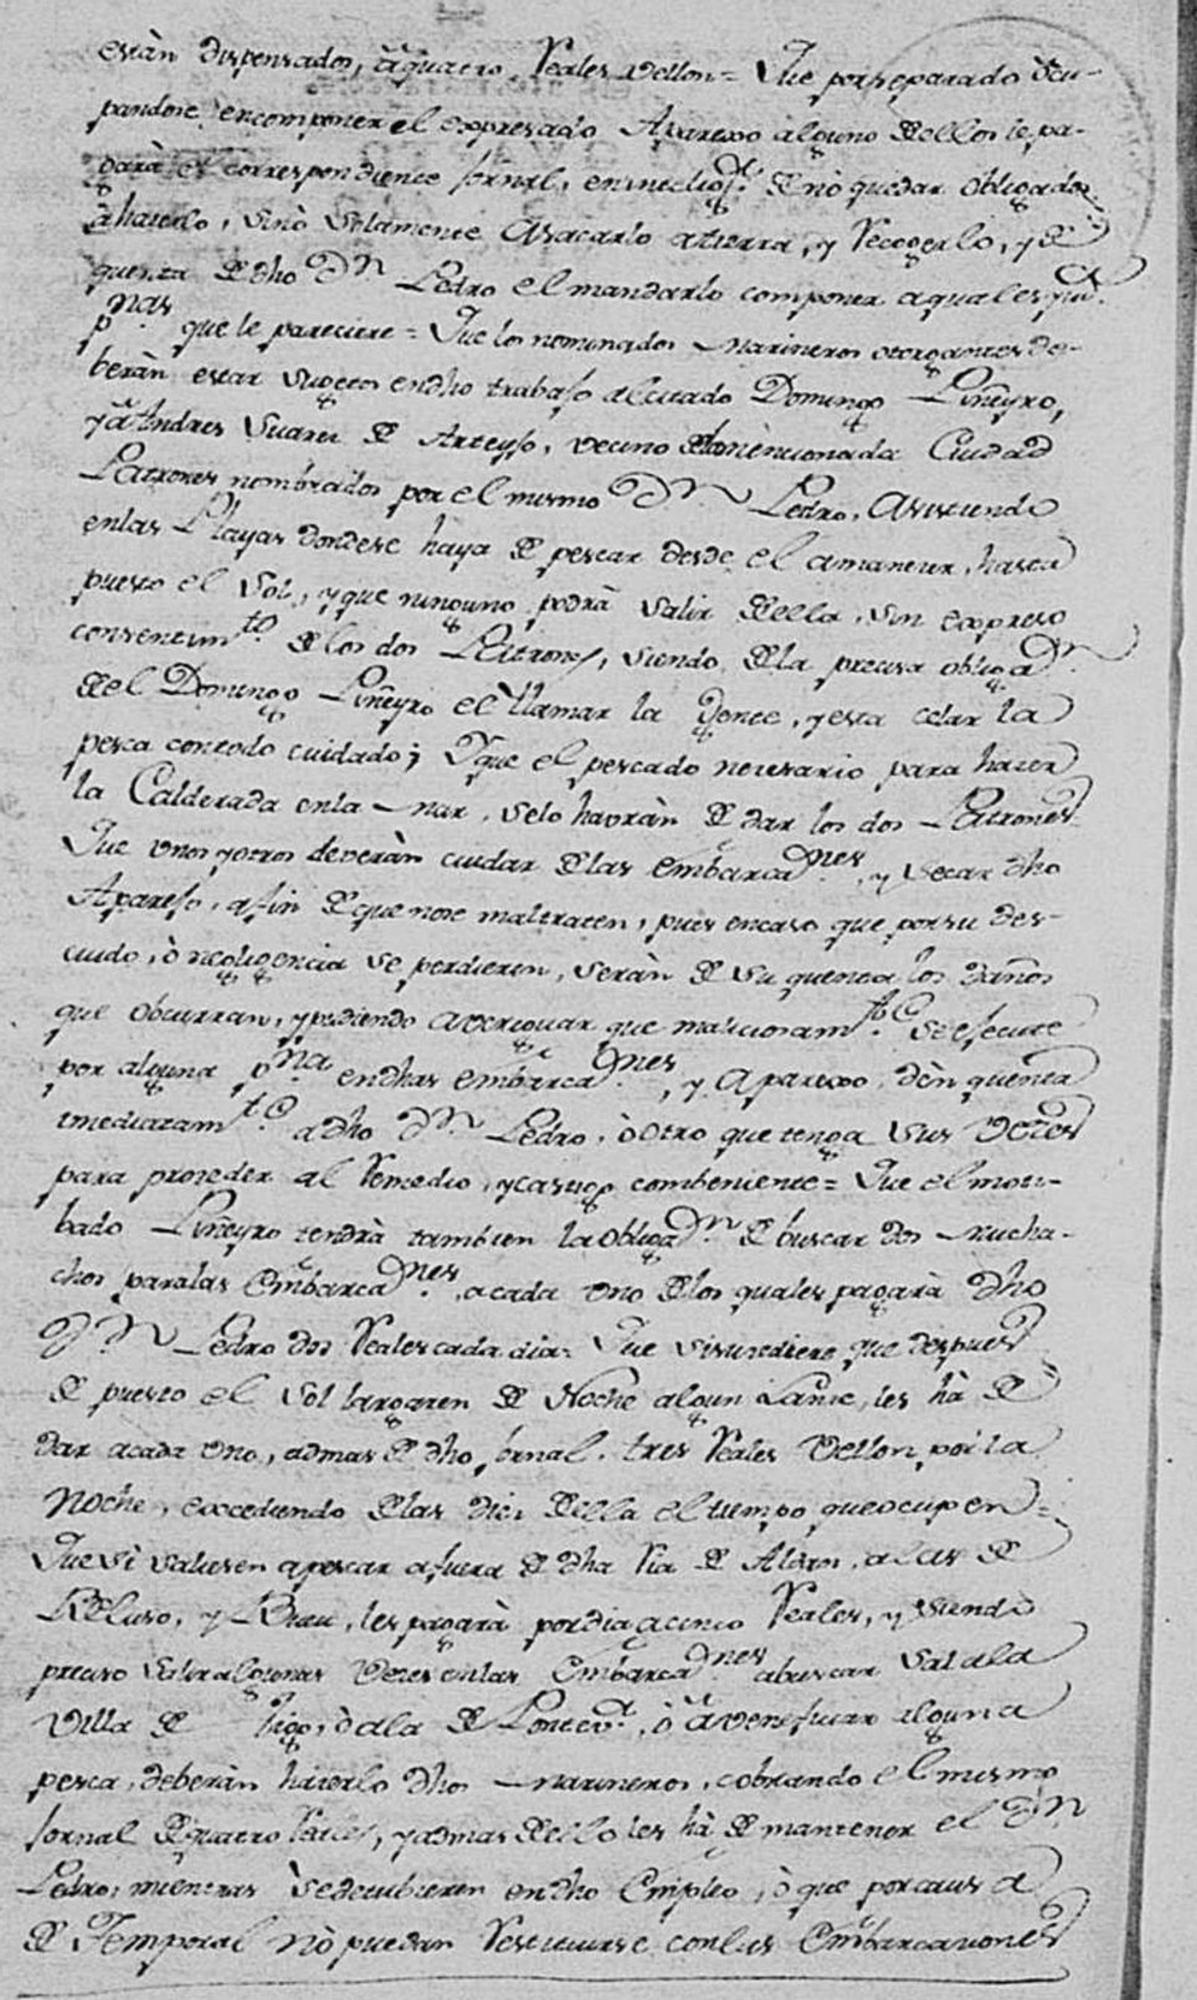 están dispensados, â quatro Reales Vellon = Que por separado ôcu-
pandose en componer el expresado Aparexo alguno de ellos se pa-
gará el correspondiente Jornal, en intelig.ª de nò quedar obligados
à hacerlo, sinò Solamente à sacarlo a tierra, y Recogerlo, y de
quenta de dho Dn Pedro el mandarlo componer a quales q.ª
pnas que le pareciere = Que los nominados Marineros otorgantes de-
berán estar sugetos en dho trabajo al citado Domingo Piñeyro,
y â Andres Suarez de Arteyjo, vecino de la mencionada Ciudad
Patrones nombrados por el mismo Dn Pedro, Asistiendo
en las Playas donde se haya de pescar desde el amanecer, hasta
puesto el Sol, y que ninguno podrà salir de ella, sin expreso
consentimto de los dos Patrones, siendo de la precisa obligaon
de el Domingo Piñeyro el llamar la Gente, y esta celar la
pesca con todo cuidado; Y que el pescado necesario para hacer
la Calderada en la Mar, selo havràn de dar los dos Patrones
Que unos y otros deveràn cuidar de las embarcaones, y Secar dho
Aparejo, a fin de que nose maltraten, pues encaso que por su des-
cuido, ò negligencia se perdieren, seràn de su quenta los daños
que ôcurran, y pudiendo averiguar que maliciosamte se ejecute
por alguna pna en dhas embarcaones, y Aparexo, dèn quenta
imediatamte a dho Dn Pedro, ò otro que tenga sus veces
para proceder al Remedio, y castigo combeniente = Que el moti-
bado Piñeyro tendrà tambien la obligaon de buscar dos Mucha-
chos para las Embarcaones, a cada uno de los quales pagarà dho
Dn Pedro dos Reales cada dia = Que si sucediere que despues
de puesto el Sol largaren de Noche algun Lance, les hà de
dar a cada uno, admas de dho Jornal, tres Reales Vellon por la
Noche, excediendo de las diez de ella el tiempo que ocupen =
Que si salieren a pescar afuera de dha Ria de Aldan, a las de
y Beau, les pagarà por dia a cinco Reales, y siendo
preciso Salir algunas veces en las Embarcaones a buscar Sal a la
Villa de Vigo, ò a la de Pontevª, ò â veneficiar alguna
pesca, deberàn hacerlo dhos Marineros, cobrando el mismo
Jornal de quatro Reales, y admas de ello les hà de mantener el Dn
Pedro, mientras se en dho Empleo, ò que por causa
de Temporal nò puedan Restituirse con las Embarcaciones